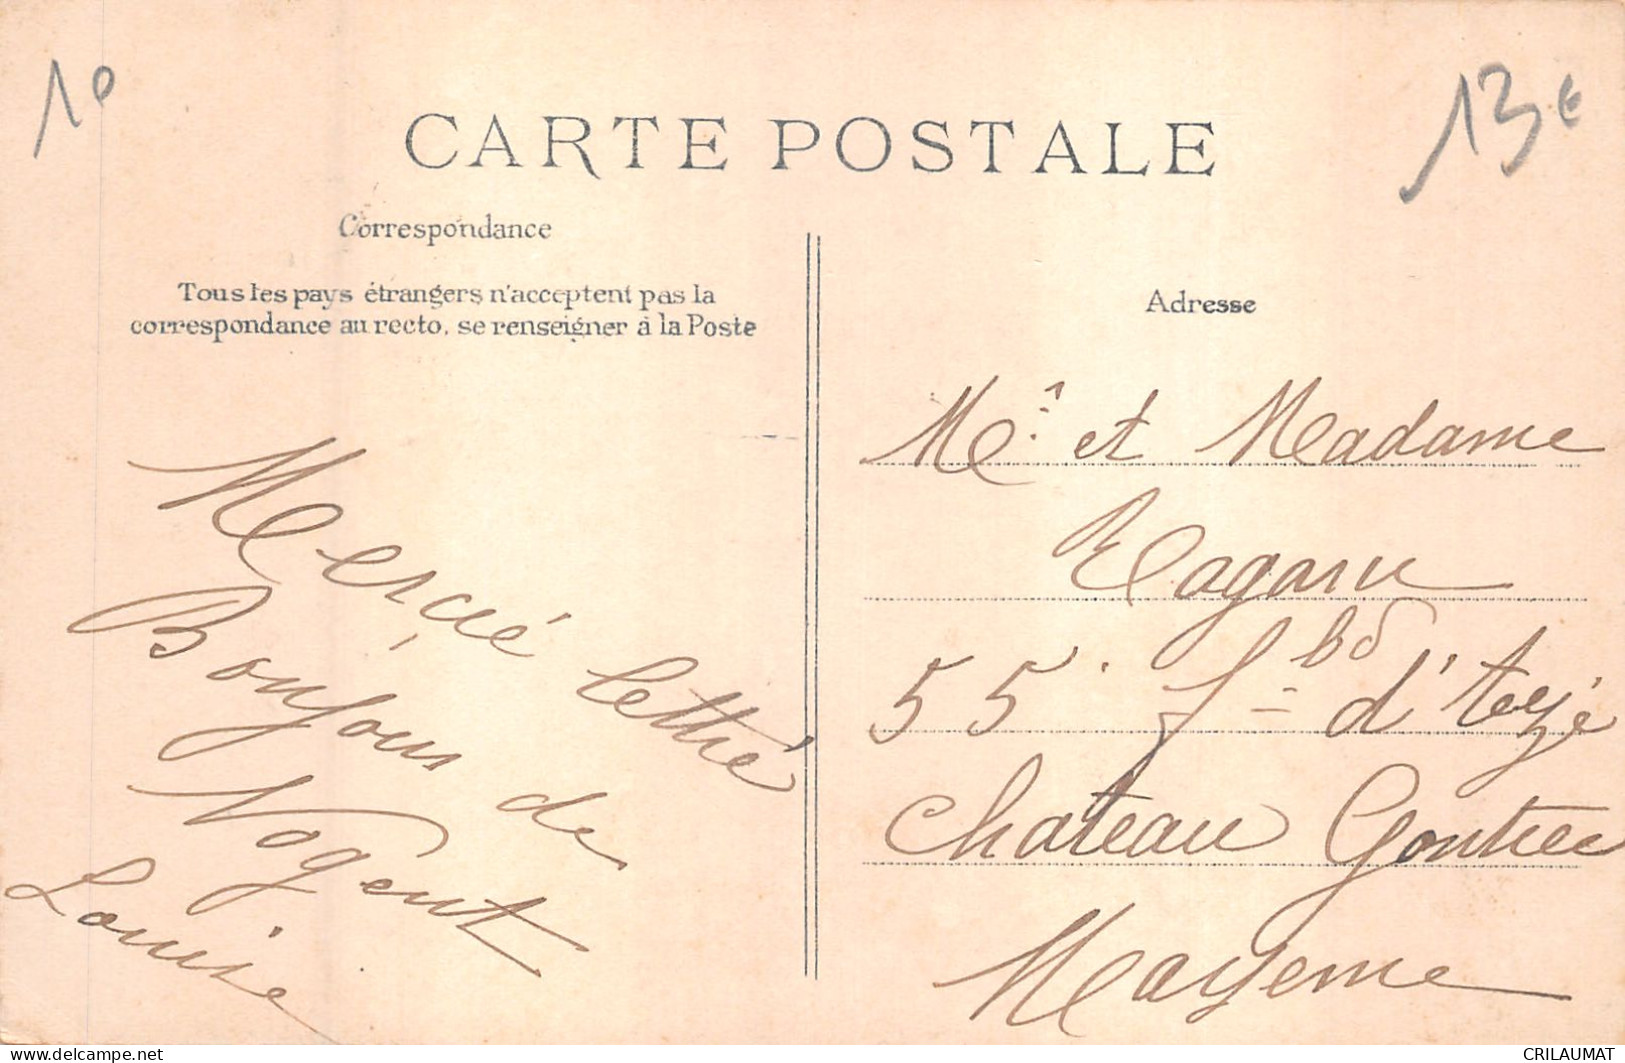 10
13€
CARTE POSTALE
Correspondance
Tous les pays étrangers n'acceptent pas la
correspondance au recto, se renseigner à la Poste
Mercie lettre
Bonjour de
Nogent
Louise
Adresse
Mr. et Madame
55 fbd d'Azé
Chateau Gontier
Mayenne
www.delcampe.net
CRILAUMAT